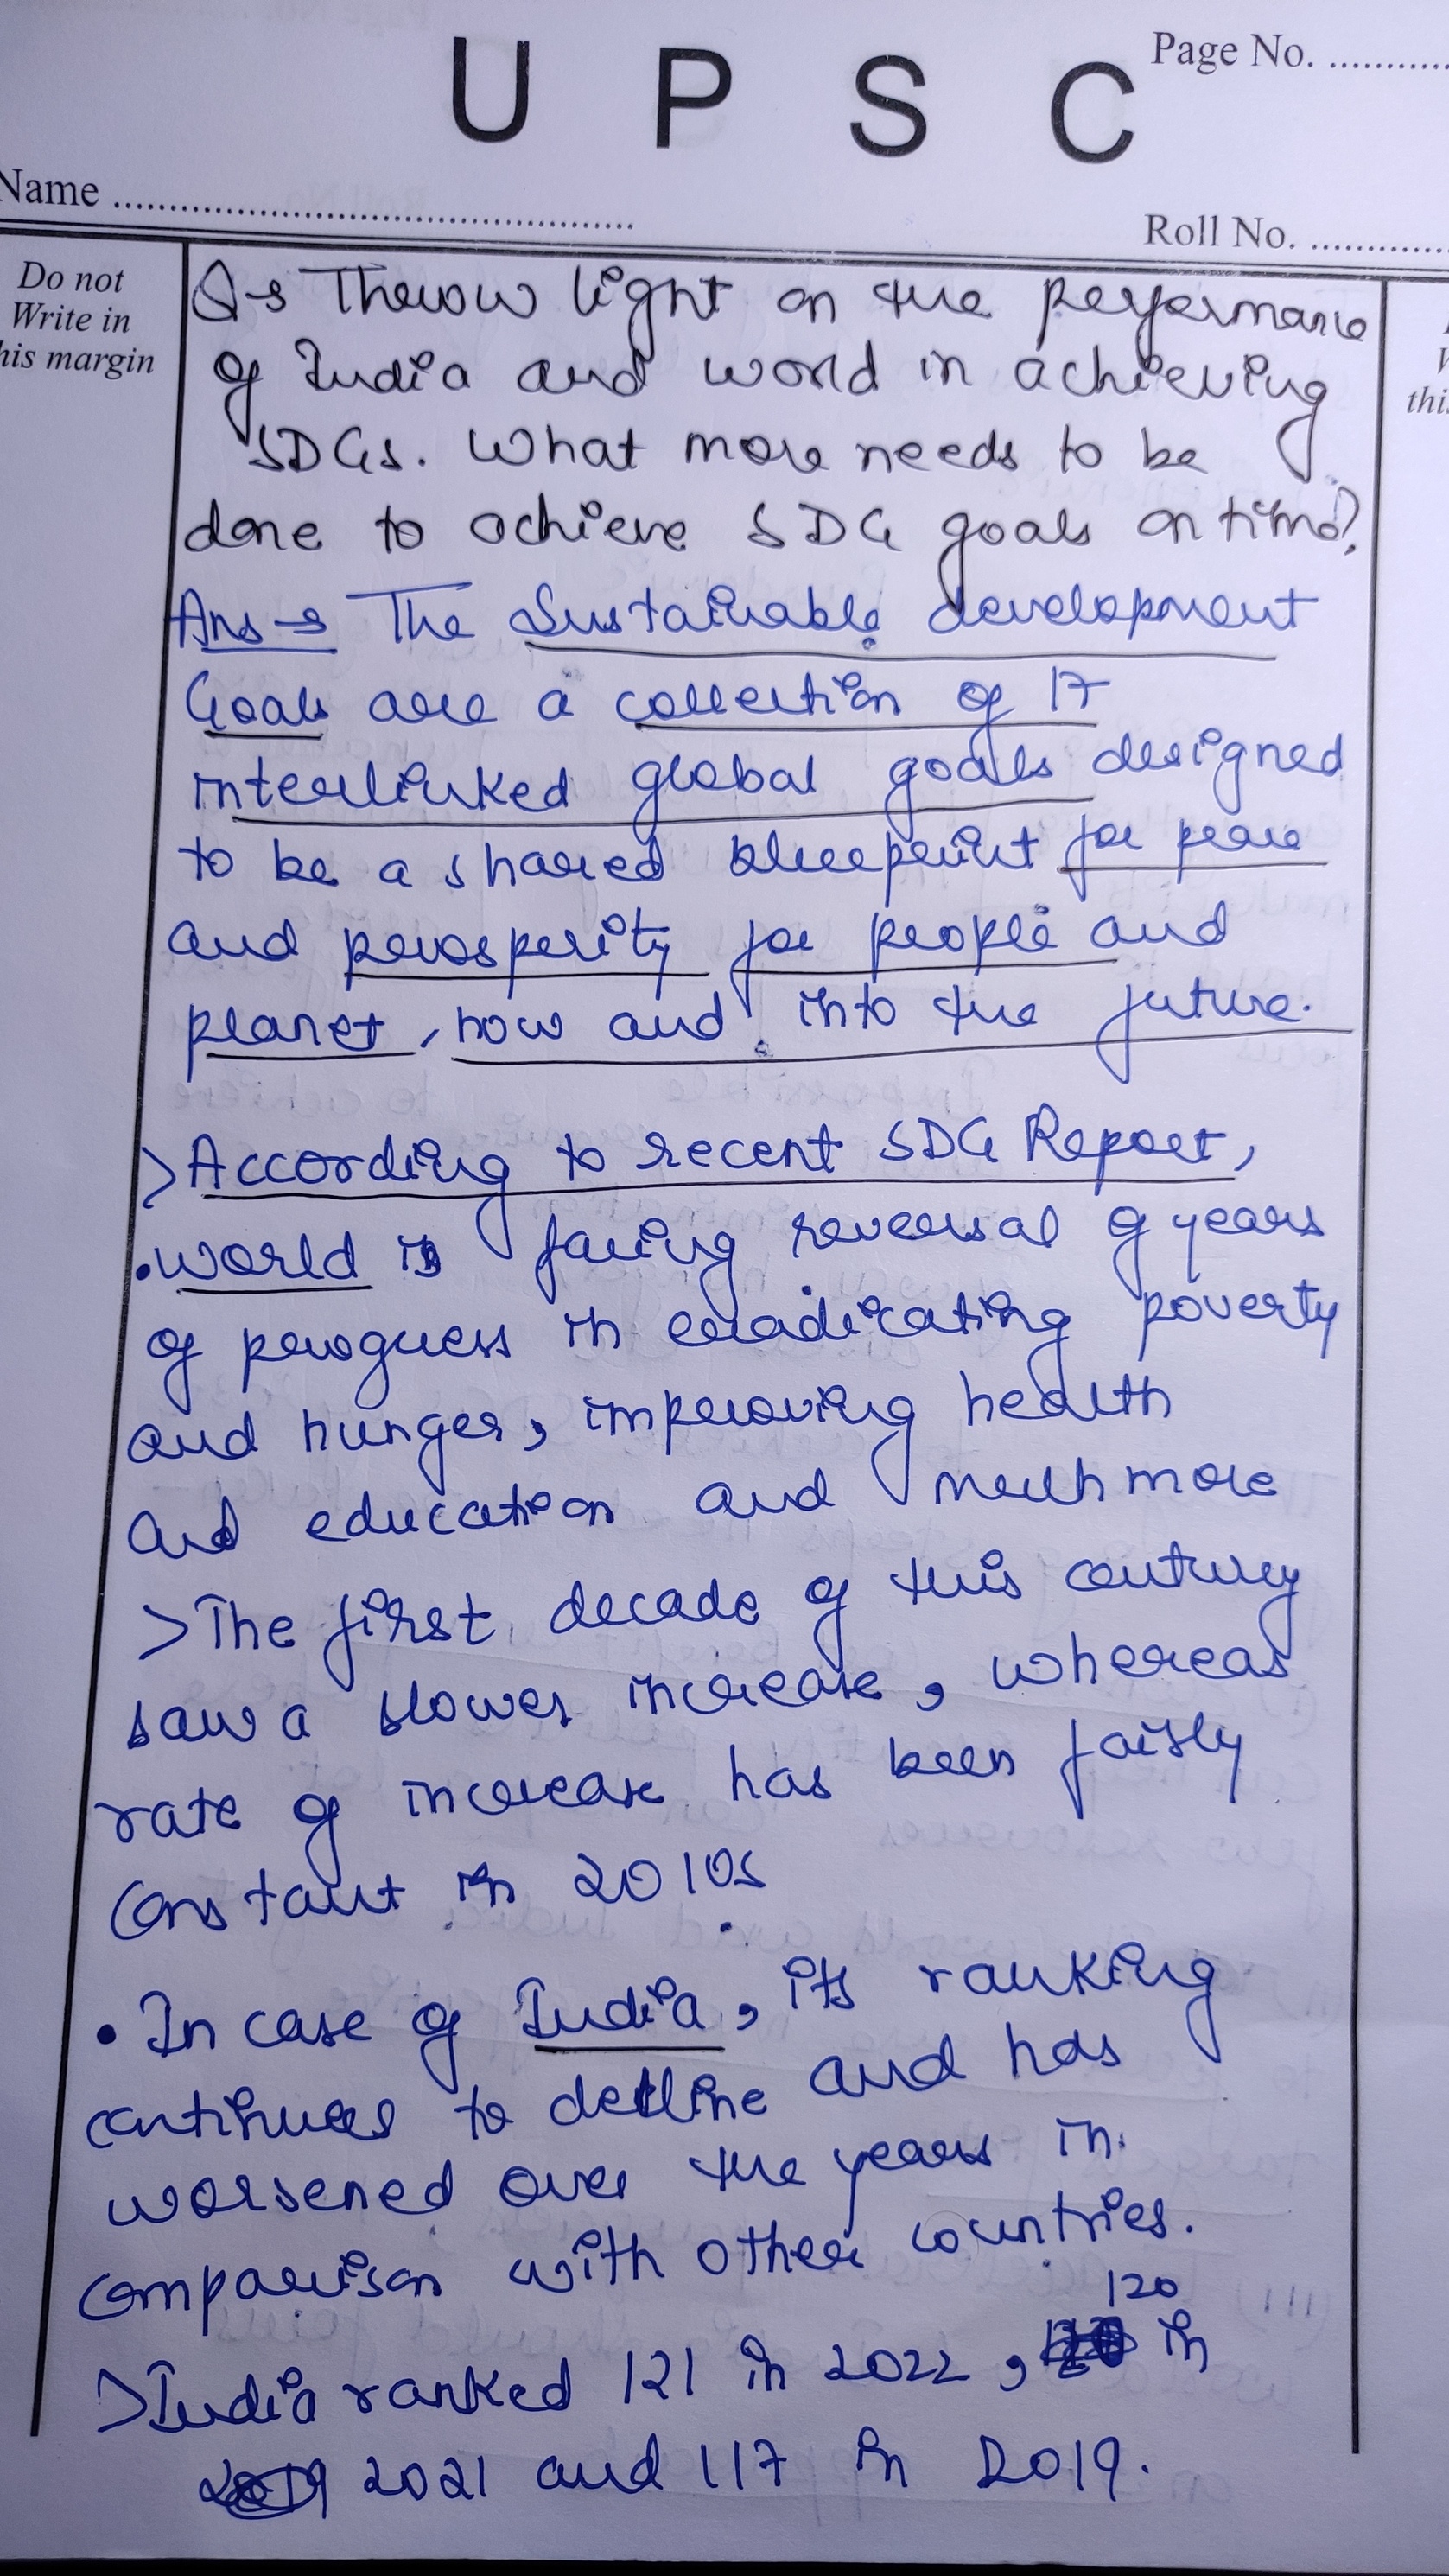 Page No. ..........
U P S C
Name ..........
Roll No. ..........
Do not
Write in
his margin
thi
Q→ Throw light on the performance
of India and world in achieving
SDGs. What more needs to be
done to achieve SDG goals on time?
Ans→ The Sustainable development
Goals are a collection of 17
interlinked global goals designed
to be a shared blueprint for peace
and prosperity for people and
planet, now and into the future.
> According to recent SDG Report,
• world is facing reversal of years
of progress in eradicating poverty
and hunger, improving health
and education and much more
> The first decade of this century
saw a slower increase, whereas
rate of increase has been fairly
constant in 2010s
• In case of India, its ranking
continues to decline and has
worsened over the years in
comparison with other countries.
> India ranked 121 in 2022, 120 in
2021 and 117 in 2019.